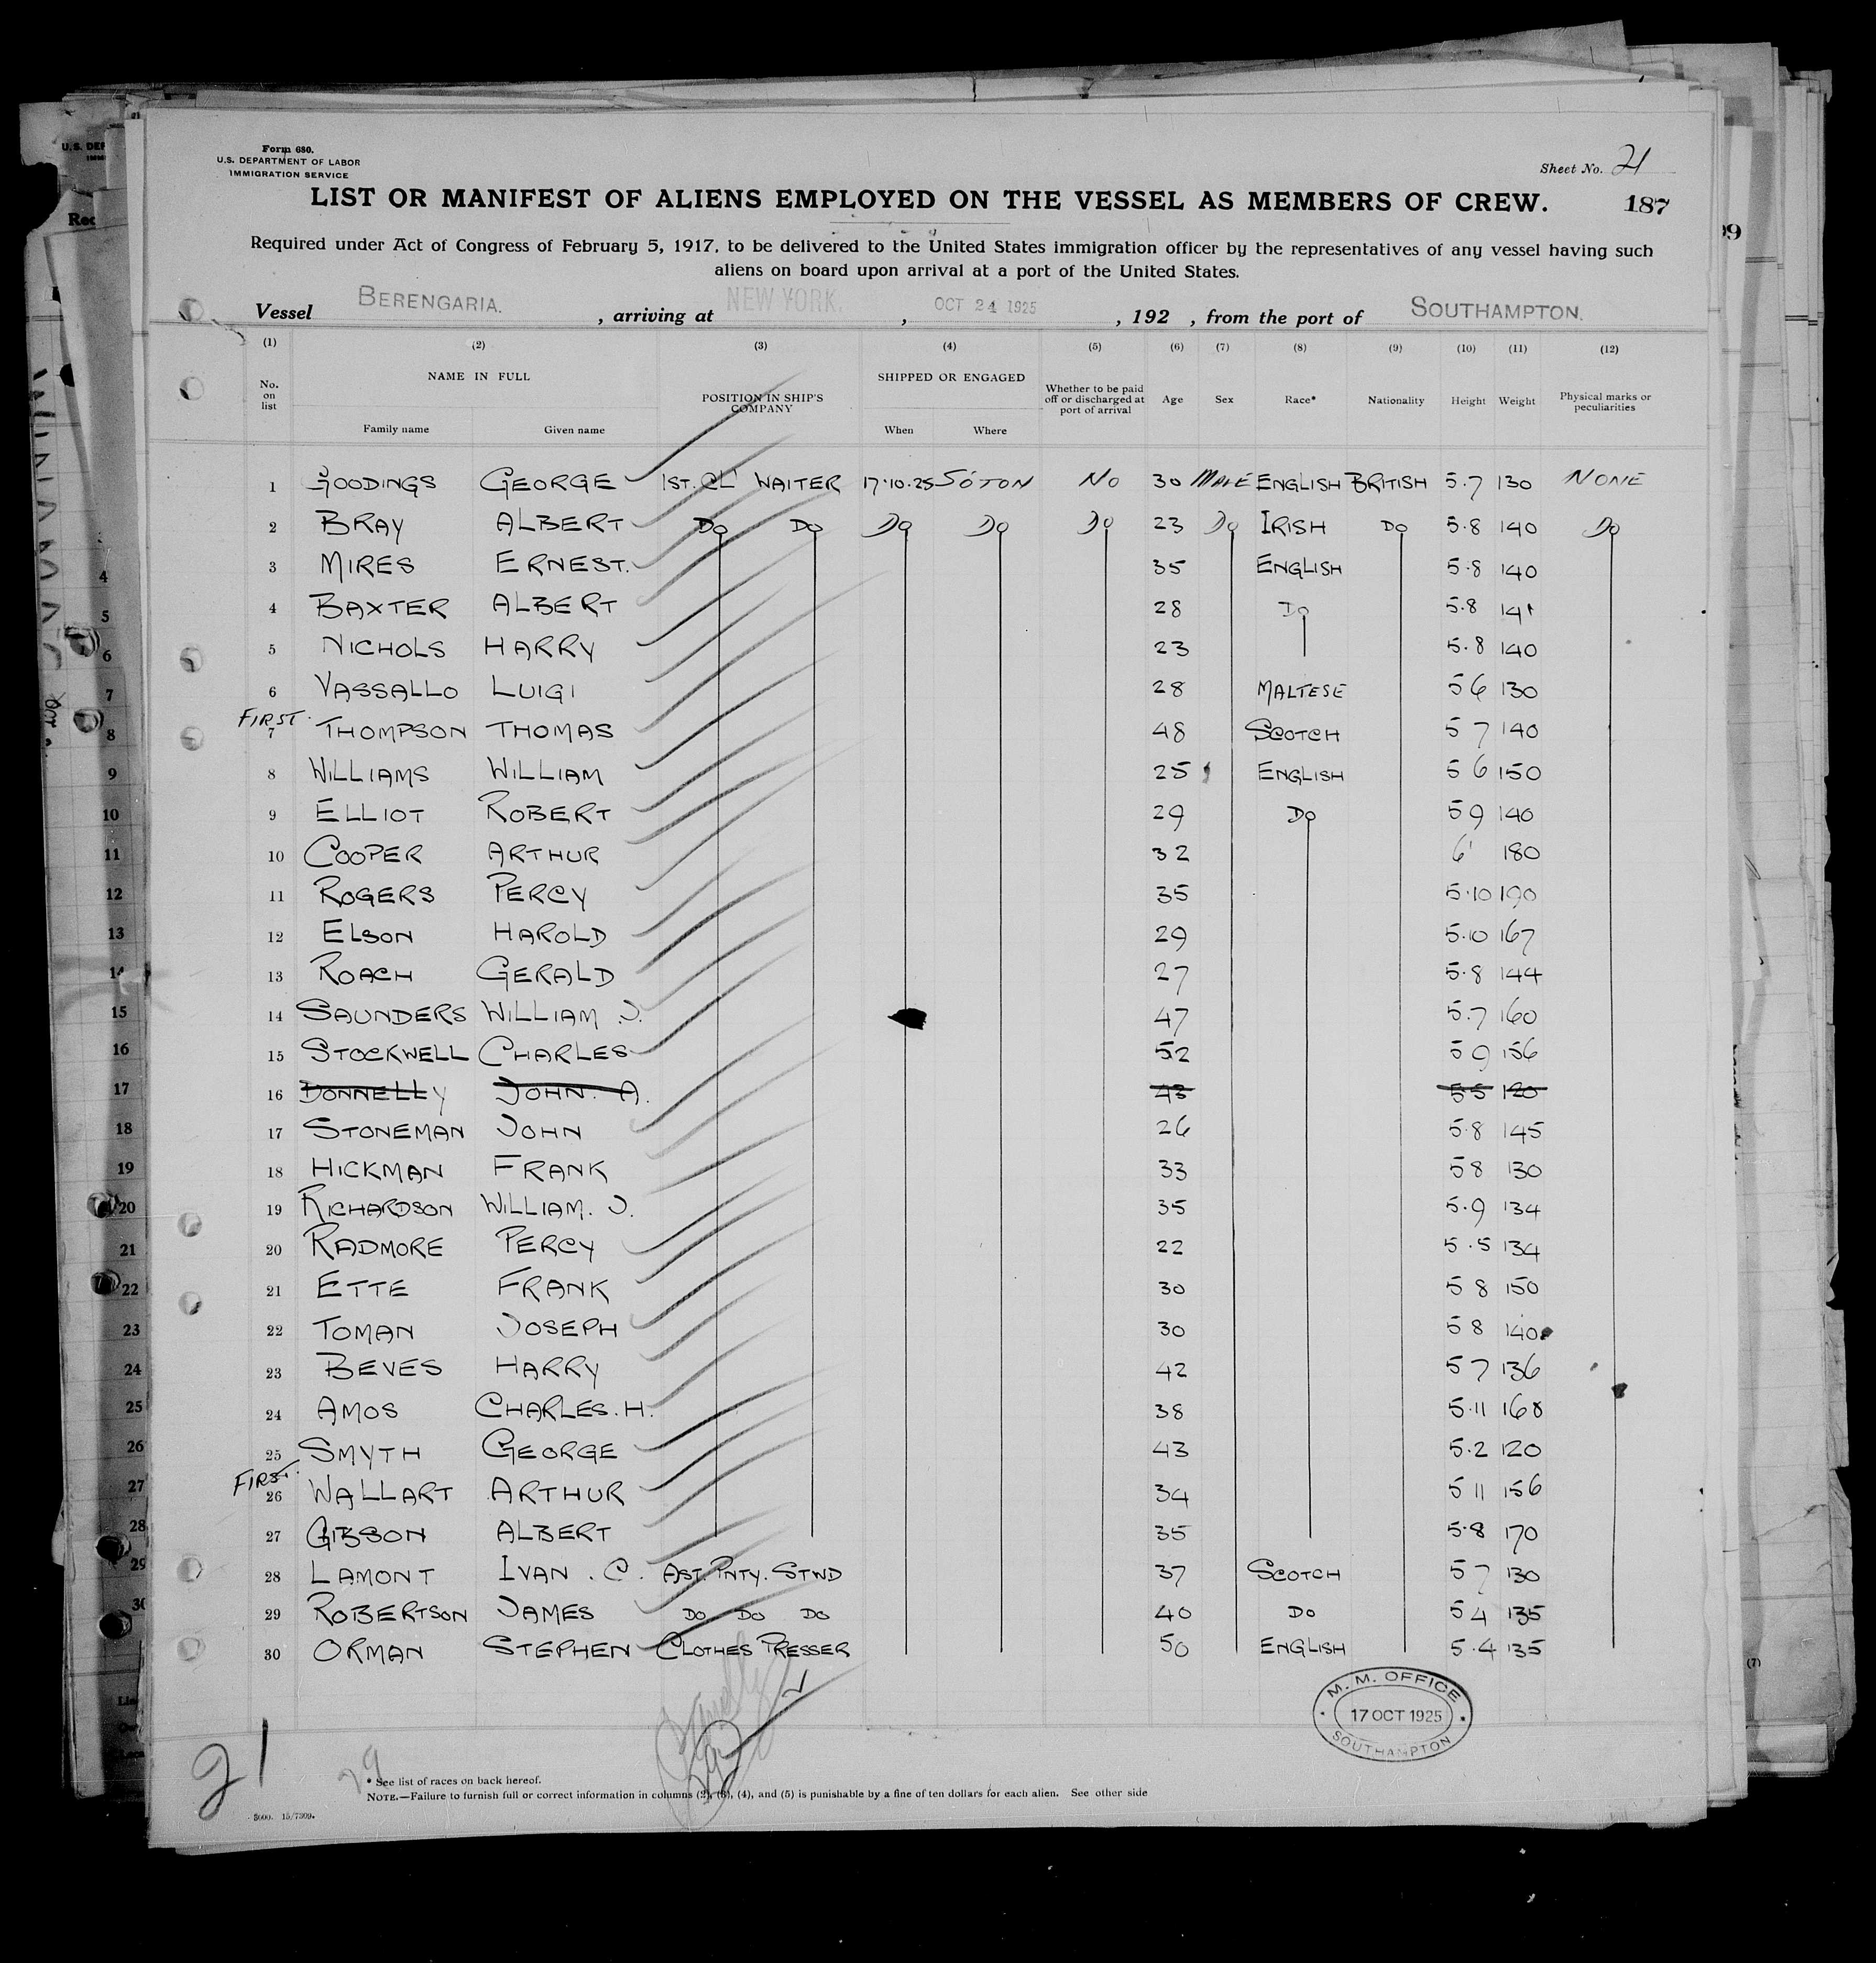 Form 680.
U.S. DEPARTMENT OF LABOR
IMMIGRATION SERVICE
Sheet No. 21
LIST OR MANIFEST OF ALIENS EMPLOYED ON THE VESSEL AS MEMBERS OF CREW.
187
Required under Act of Congress of February 5, 1917, to be delivered to the United States immigration officer by the representatives of any vessel having such
aliens on board upon arrival at a port of the United States.
Vessel BERENGARIA. , arriving at NEW YORK. , OCT 24 1925 , 192 , from the port of SOUTHAMPTON.
(1) (2) (3) (4) (5) (6) (7) (8) (9) (10) (11) (12)
No. on list NAME IN FULL Family name Given name POSITION IN SHIP'S COMPANY SHIPPED OR ENGAGED When Where Whether to be paid off or discharged at port of arrival Age Sex Race* Nationality Height Weight Physical marks or peculiarities
1 GOODINGS GEORGE 1ST. CL WAITER 17.10.25 SO'TON NO 30 MALE ENGLISH BRITISH 5.7 130 NONE
2 BRAY ALBERT DO DO DO DO DO 23 DO IRISH DO 5.8 140 DO
3 MIRES ERNEST. 35 ENGLISH 5.8 140
4 BAXTER ALBERT 28 DO 5.8 141
5 NICHOLS HARRY 23 5.8 140
6 VASSALLO LUIGI 28 MALTESE 5 6 130
FIRST.
7 THOMPSON THOMAS 48 SCOTCH 5 7 140
8 WILLIAMS WILLIAM 25 ENGLISH 5 6 150
9 ELLIOT ROBERT 29 DO 5 9 140
10 COOPER ARTHUR 32 6' 180
11 ROGERS PERCY 35 5.10 190
12 ELSON HAROLD 29 5.10 167
13 ROACH GERALD 27 5.8 144
14 SAUNDERS WILLIAM .J. 47 5.7 160
15 STOCKWELL CHARLES 52 5 9 156
16 DONNELLY JOHN. A. 43 5 5 120
17 STONEMAN JOHN 26 5.8 145
18 HICKMAN FRANK 33 5 8 130
19 RICHARDSON WILLIAM. J. 35 5.9 134
20 RADMORE PERCY 22 5.5 134
21 ETTE FRANK 30 5 8 150
22 TOMAN JOSEPH 30 5 8 140
23 BEVES HARRY 42 5 7 136
24 AMOS CHARLES.H. 38 5.11 168
25 SMYTH GEORGE 43 5.2 120
FIRST.
26 WALLART ARTHUR 34 5 11 156
27 GIBSON ALBERT 35 5.8 170
28 LAMONT IVAN . C. AST. PNTY. STWD 37 SCOTCH 5 7 130
29 ROBERTSON JAMES DO DO DO 40 DO 5 4 135
30 ORMAN STEPHEN CLOTHES PRESSER 50 ENGLISH 5.4 135
M. M. OFFICE
17 OCT 1925
SOUTHAMPTON
21
29
* See list of races on back hereof.
NOTE.—Failure to furnish full or correct information in columns (2), (3), (4), and (5) is punishable by a fine of ten dollars for each alien. See other side